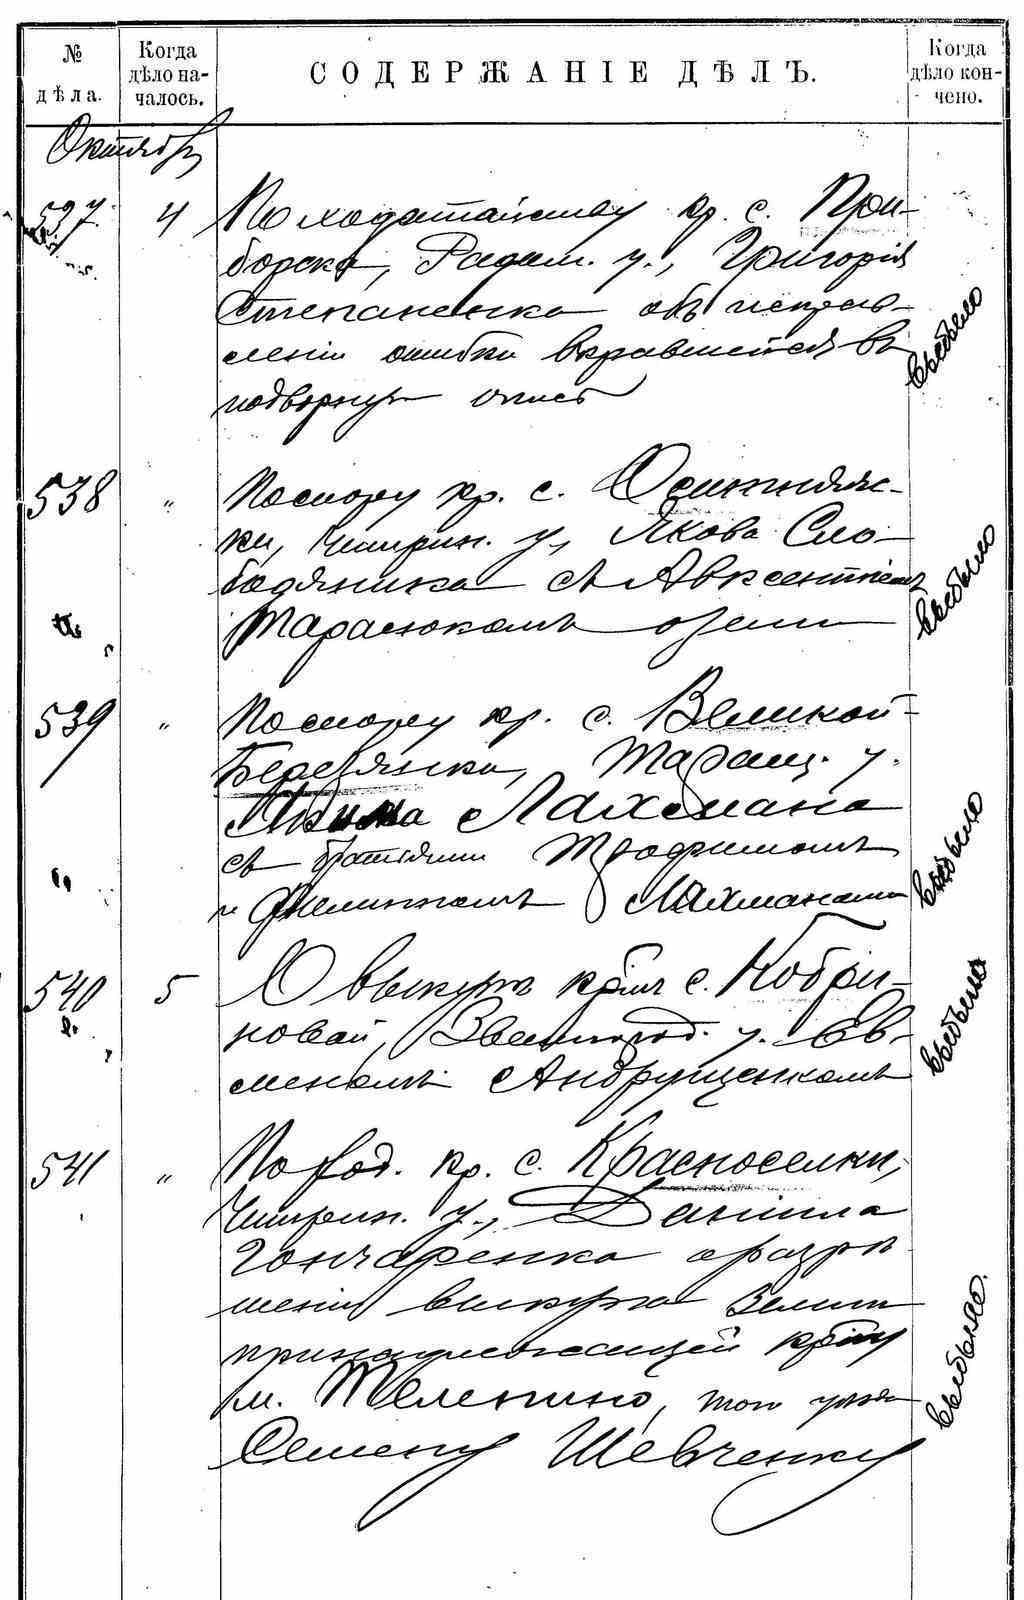 № дѣла.
Когда дѣло на-
чалось.
СОДЕРЖАНІЕ ДѢЛЪ.
Когда дѣло кон-
чено.
Октябрь
537. 4 По ходатайству кр. с. При-
борска, Радом. у., Григорія
Степаненка объ исправ-
леніи ошибки вкравшейся въ
подворную опись
выбыло
538 " По спору кр. с. Оситняж-
ки, Чигирин. у., Якова Сло-
бодяника съ Авксентіемъ
Тарасюкомъ о земли
выбыло
539 " По спору кр. с. Великой-
Березянки, Таращ. у.
Лахмана
съ братіями Трофимомъ
и Филиппомъ Лахманами
выбыло
540 5 О выкупѣ кр-мъ с. Кобри-
новой, Звенигород. у. Ев-
меномъ Андрущенкомъ
выбыло
541 " По ход. кр. с. Красноселки,
Чигирин. у., Даніила
Гончаренка о разрѣ
шеніи выкупа земли
принадлежащей кр-ну
м. Телепино, того уѣзда
Семену Шевченку
выбыло.